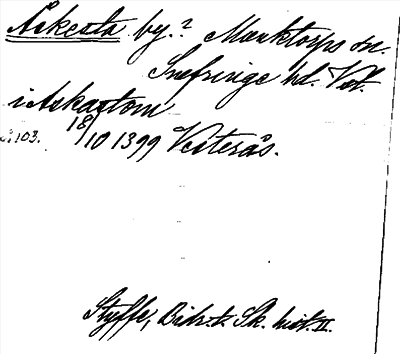 Åkesta by.? Munktorps sn.
Snefringe hd. Vstl.
i Askastom
18/10 1399 Vesterås.
s. 103.
Styffe, Bidr. t. Sk. hist. II.